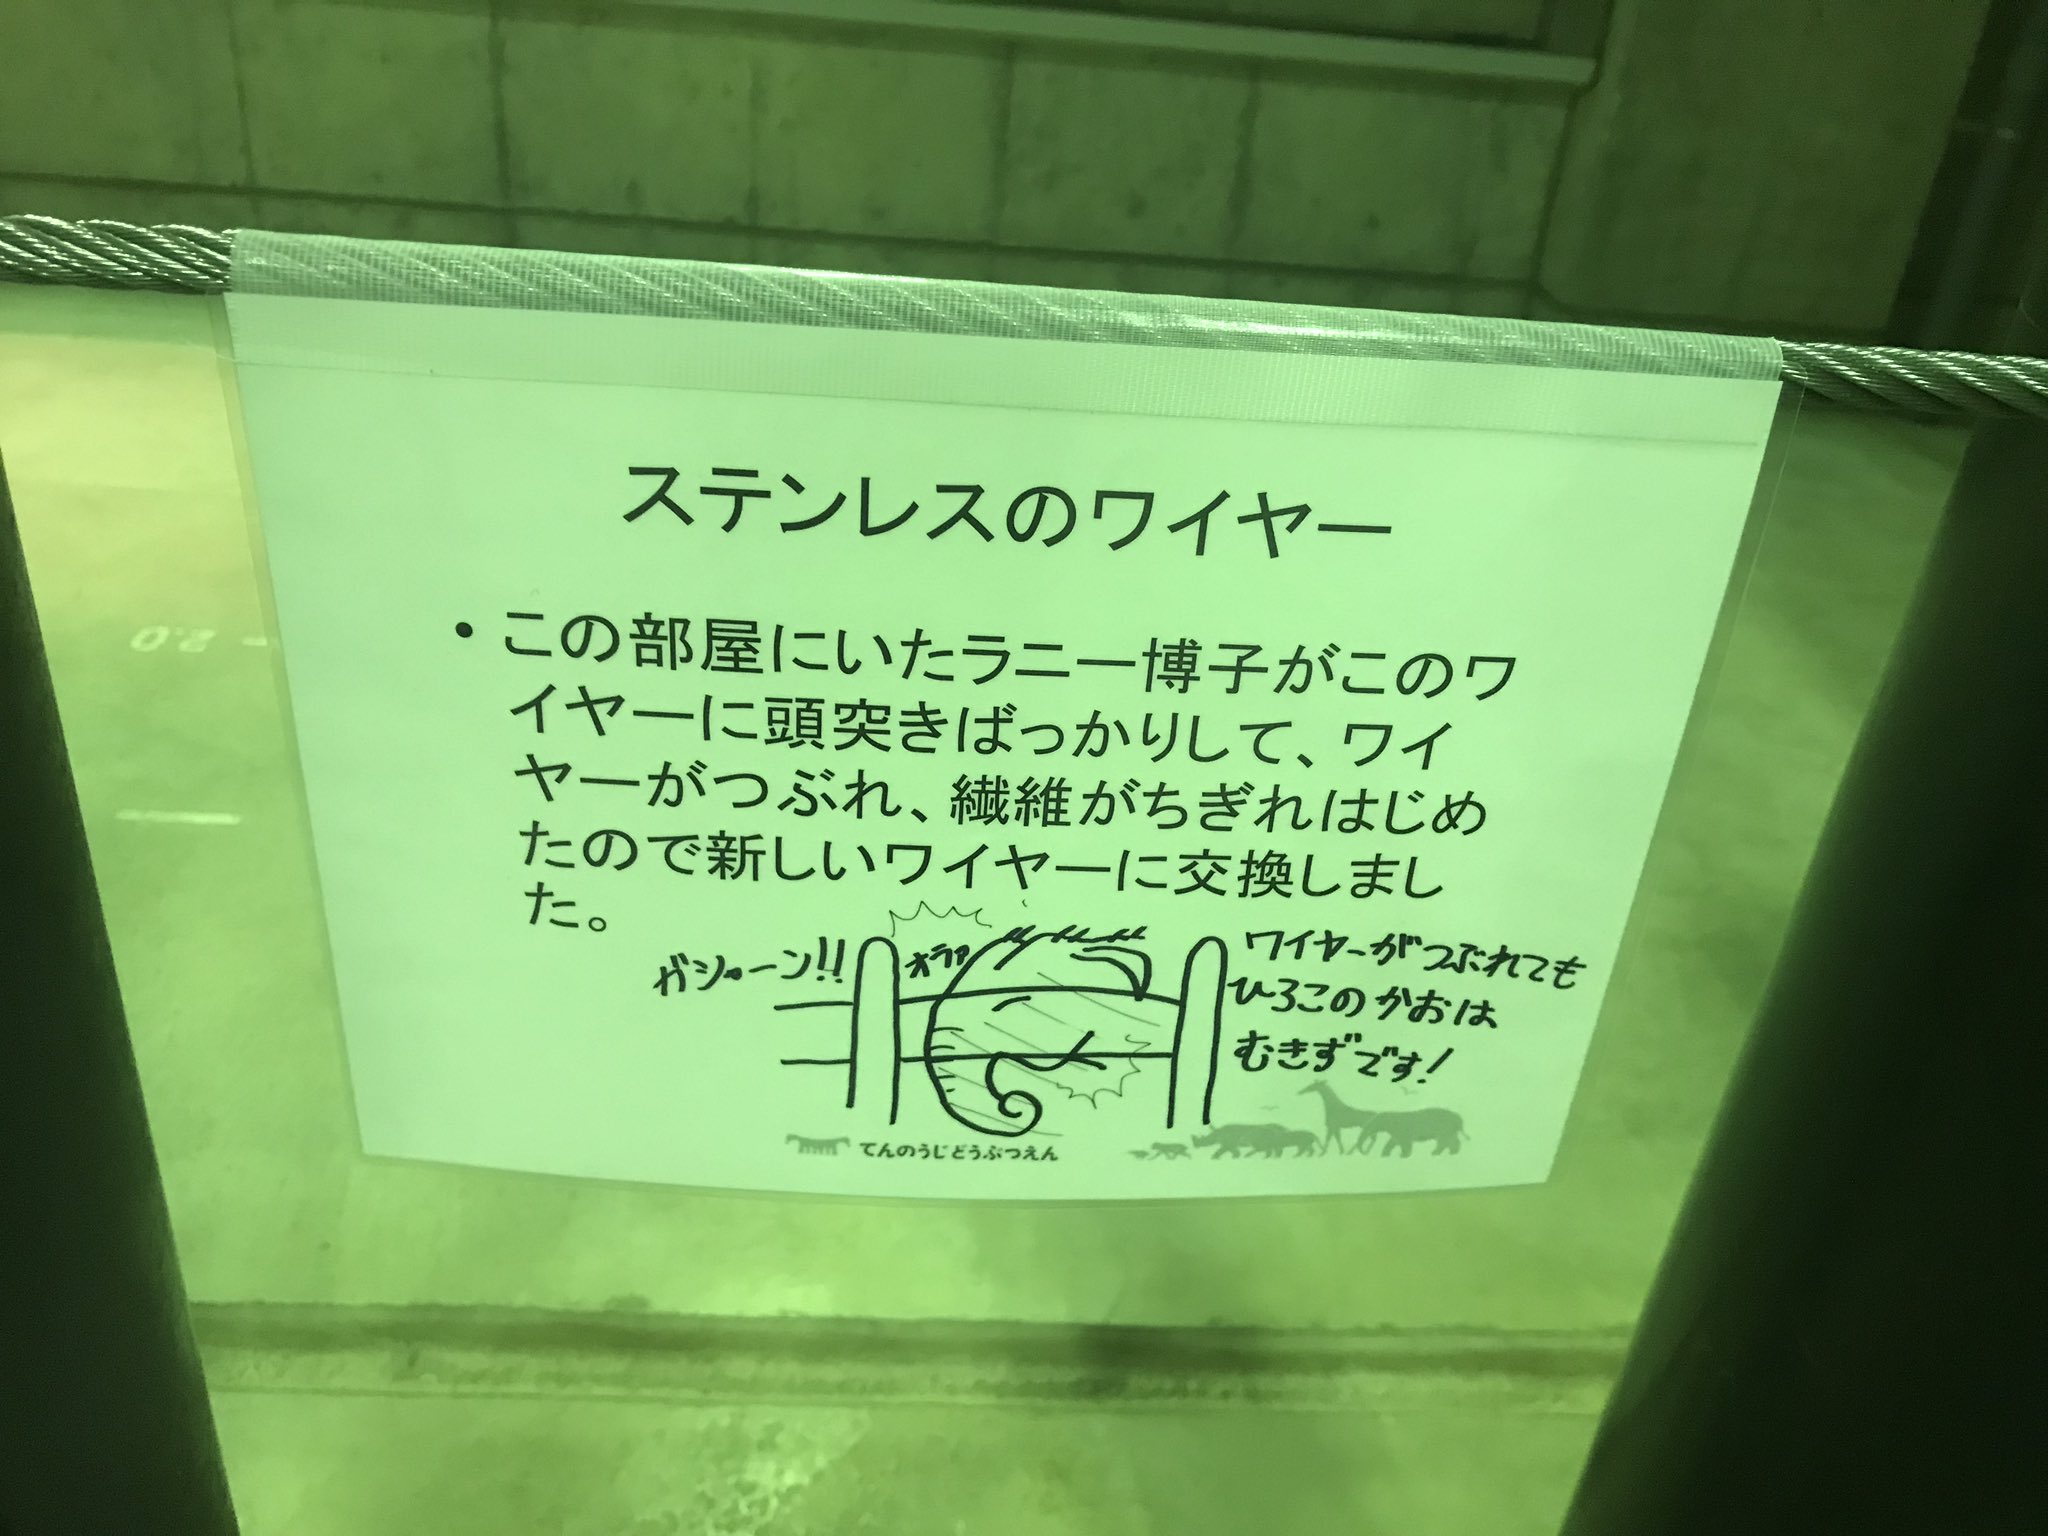 ステンレスのワイヤー
・この部屋にいたラニー博子がこのワ
イヤーに頭突きばっかりして、ワイ
ヤーがつぶれ、繊維がちぎれはじめ
たので新しいワイヤーに交換しまし
た。
ガシャーン!!
オラァ
ワイヤーがつぶれても
ひろこのかおは
むきずです!
てんのうじどうぶつえん
2.0